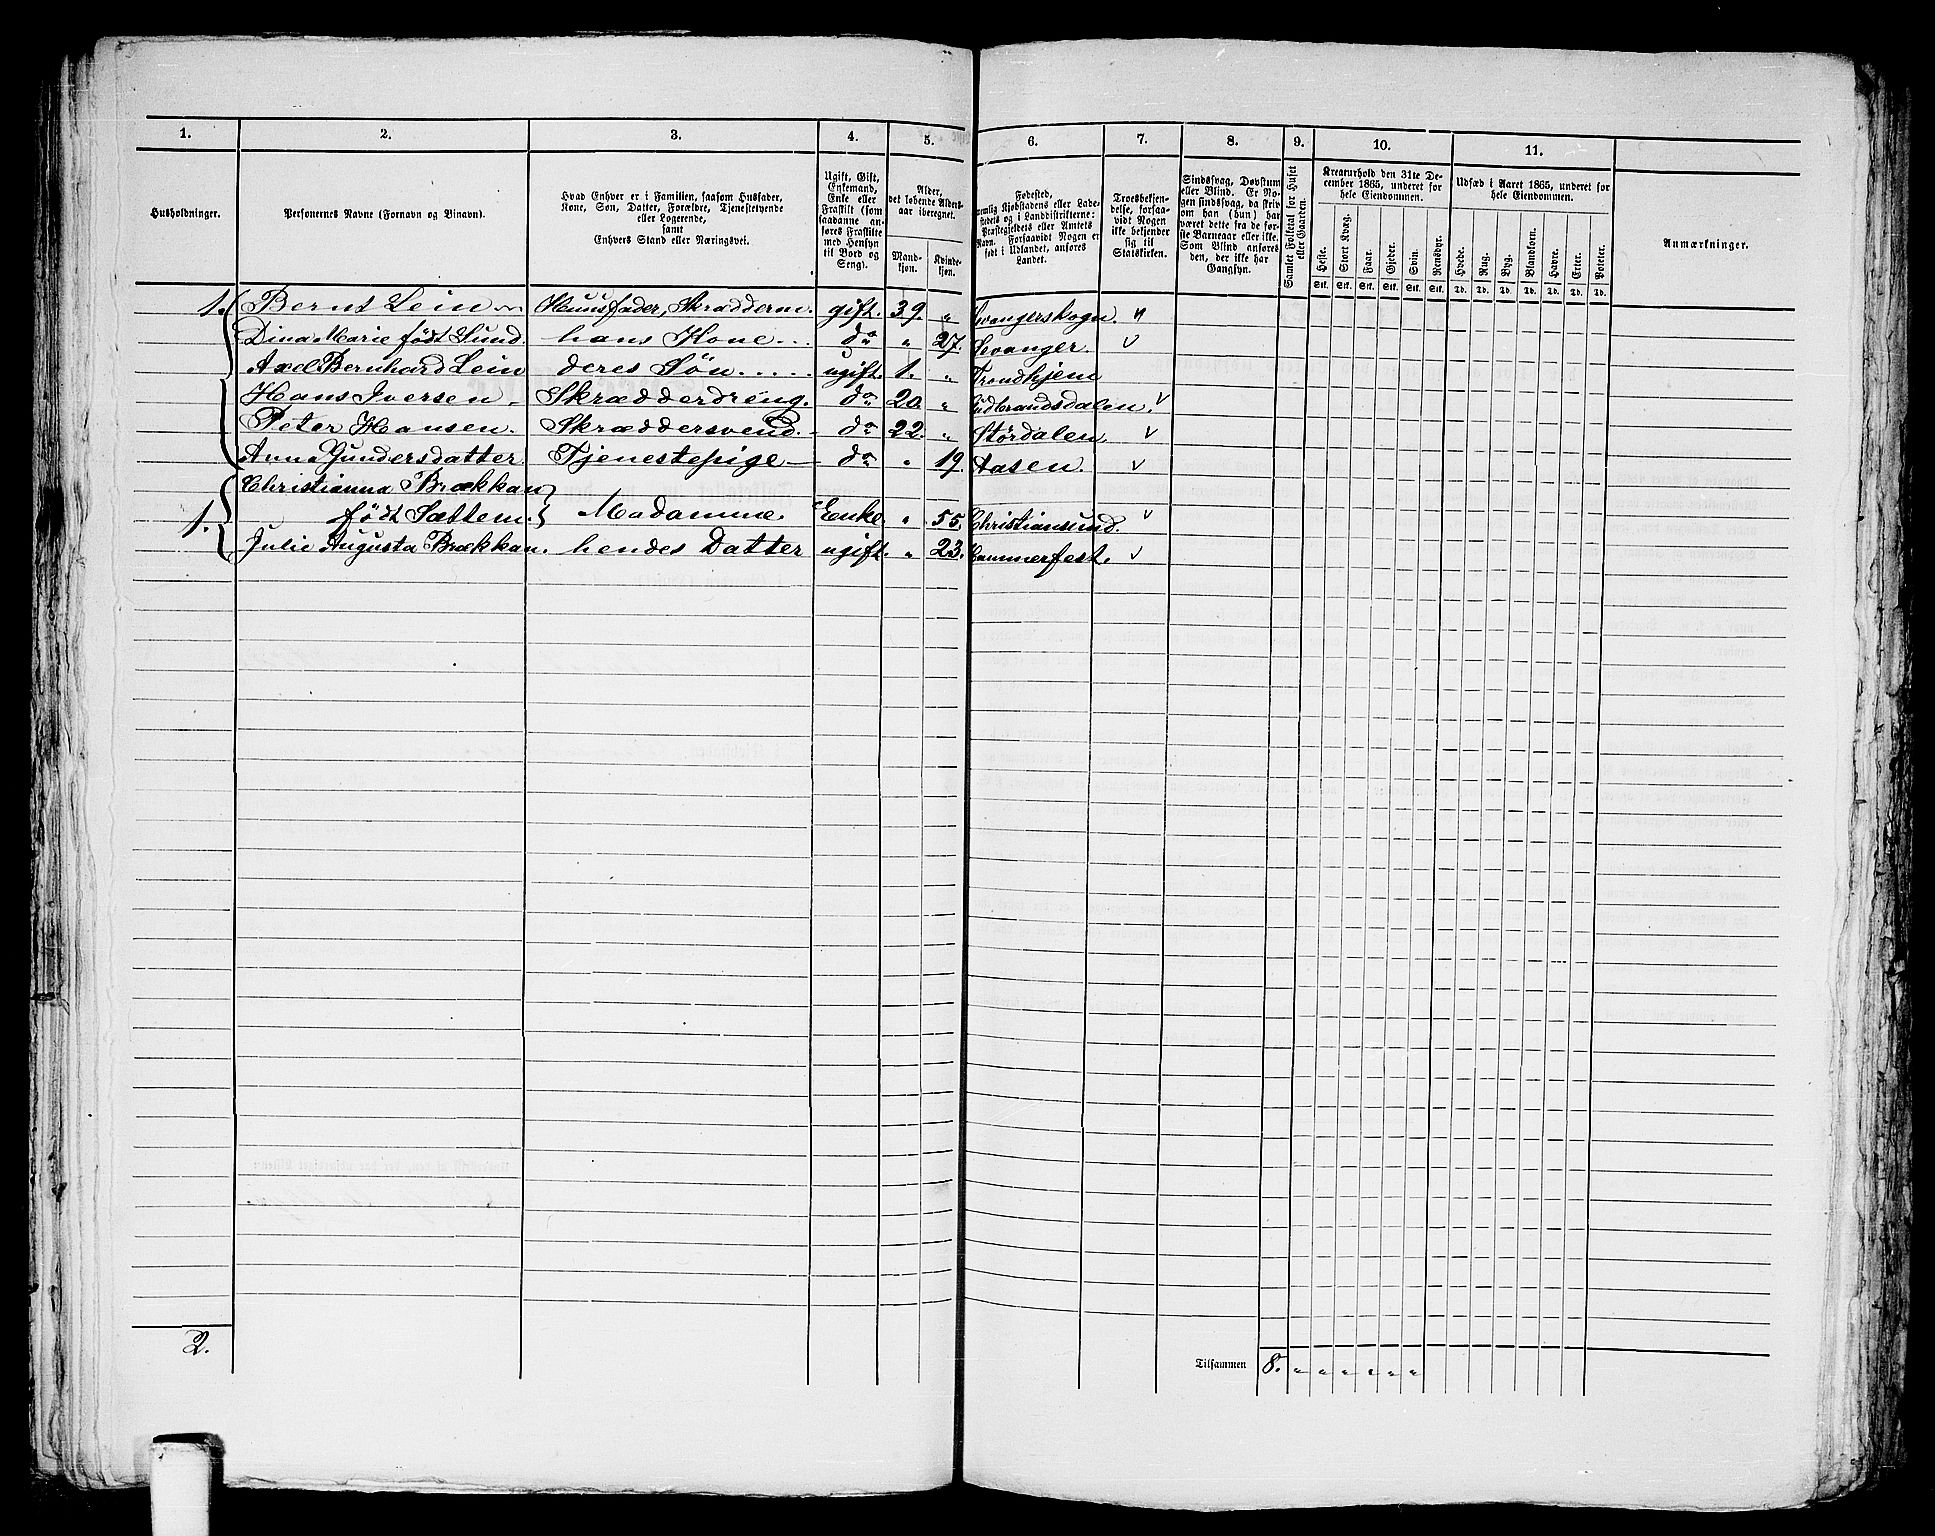 1. 2. 3. 4. 5. 6. 7. 8. 9. 10. 11.
Husholdninger.
Personernes Navne (Fornavn og Binavn).
Hvad Enhver er i Familien, saasom Husfader,
Kone, Søn, Datter, Forældre, Tjenestetyende
eller Logerende,
samt
Enhvers Stand eller Næringsvei.
Ugift, Gift,
Enkemand,
Enke eller
Fraskilt (som
saadanne an-
føres Fraskilte
med Hensyn
til Bord og
Seng).
Alder,
det løbende Alders-
aar iberegnet.
Mand-
kjøn.
Kvinde-
kjøn.
Fødested,
nemlig Kjøbstadens eller Lade-
stedets og i Landdistrikterne:
Præstegjeldets eller Amtets
Navn. Forsaavidt Nogen er
født i Udlandet, anføres
Landet.
Troesbekjen-
delse, forsaa-
vidt Nogen
ikke bekjender
sig til
Statskirken.
Sindssvag, Døvstum
eller Blind. Er No-
gen sindssvag, da skriv
om han (hun) har
været dette fra de før-
ste Barneaar eller ikke.
Som Blind anføres
den, der ikke har
Gangsyn.
Samlet Folketal for Huset
eller Gaarden.
Kreaturhold den 31te De-
cember 1865, underet for
hele Eiendommen.
Heste. Stort Kvæg. Faar. Gjeder. Svin. Rensdyr.
Stk. Stk. Stk. Stk. Stk. Stk.
Udsæd i Aaret 1865, underet for
hele Eiendommen.
Hvede. Rug. Byg. Blandkorn. Havre. Erter. Poteter.
Td. Td. Td. Td. Td. Td. Td.
Anmærkninger.
1. Bernt Lein Huusfader, Skrædderm. gift. 39. „ Levangerskogn. „
Dina Marie født Sund. hans Kone... do „ 27. Levanger.
Axel Bernhard Lein deres Søn..... ugift. 1. „ Trondhjem
Hans Iversen Skrædderdreng. do 20. „ Gudbrandsdalen.
Peter Hansen. Skræddersvend. do 22. „ Størdalen.
Anna Gundersdatter. Tjenestepige do „ 19. Aasen.
Christianna Brækkan
1. født Sættem. } Madamme. Enke. „ 55. Christiansund.
Julie Augusta Brækkan. hendes Datter ugift. „ 23. Hammerfest.
2.
Tilsammen 8. „ „ „ „ „ „